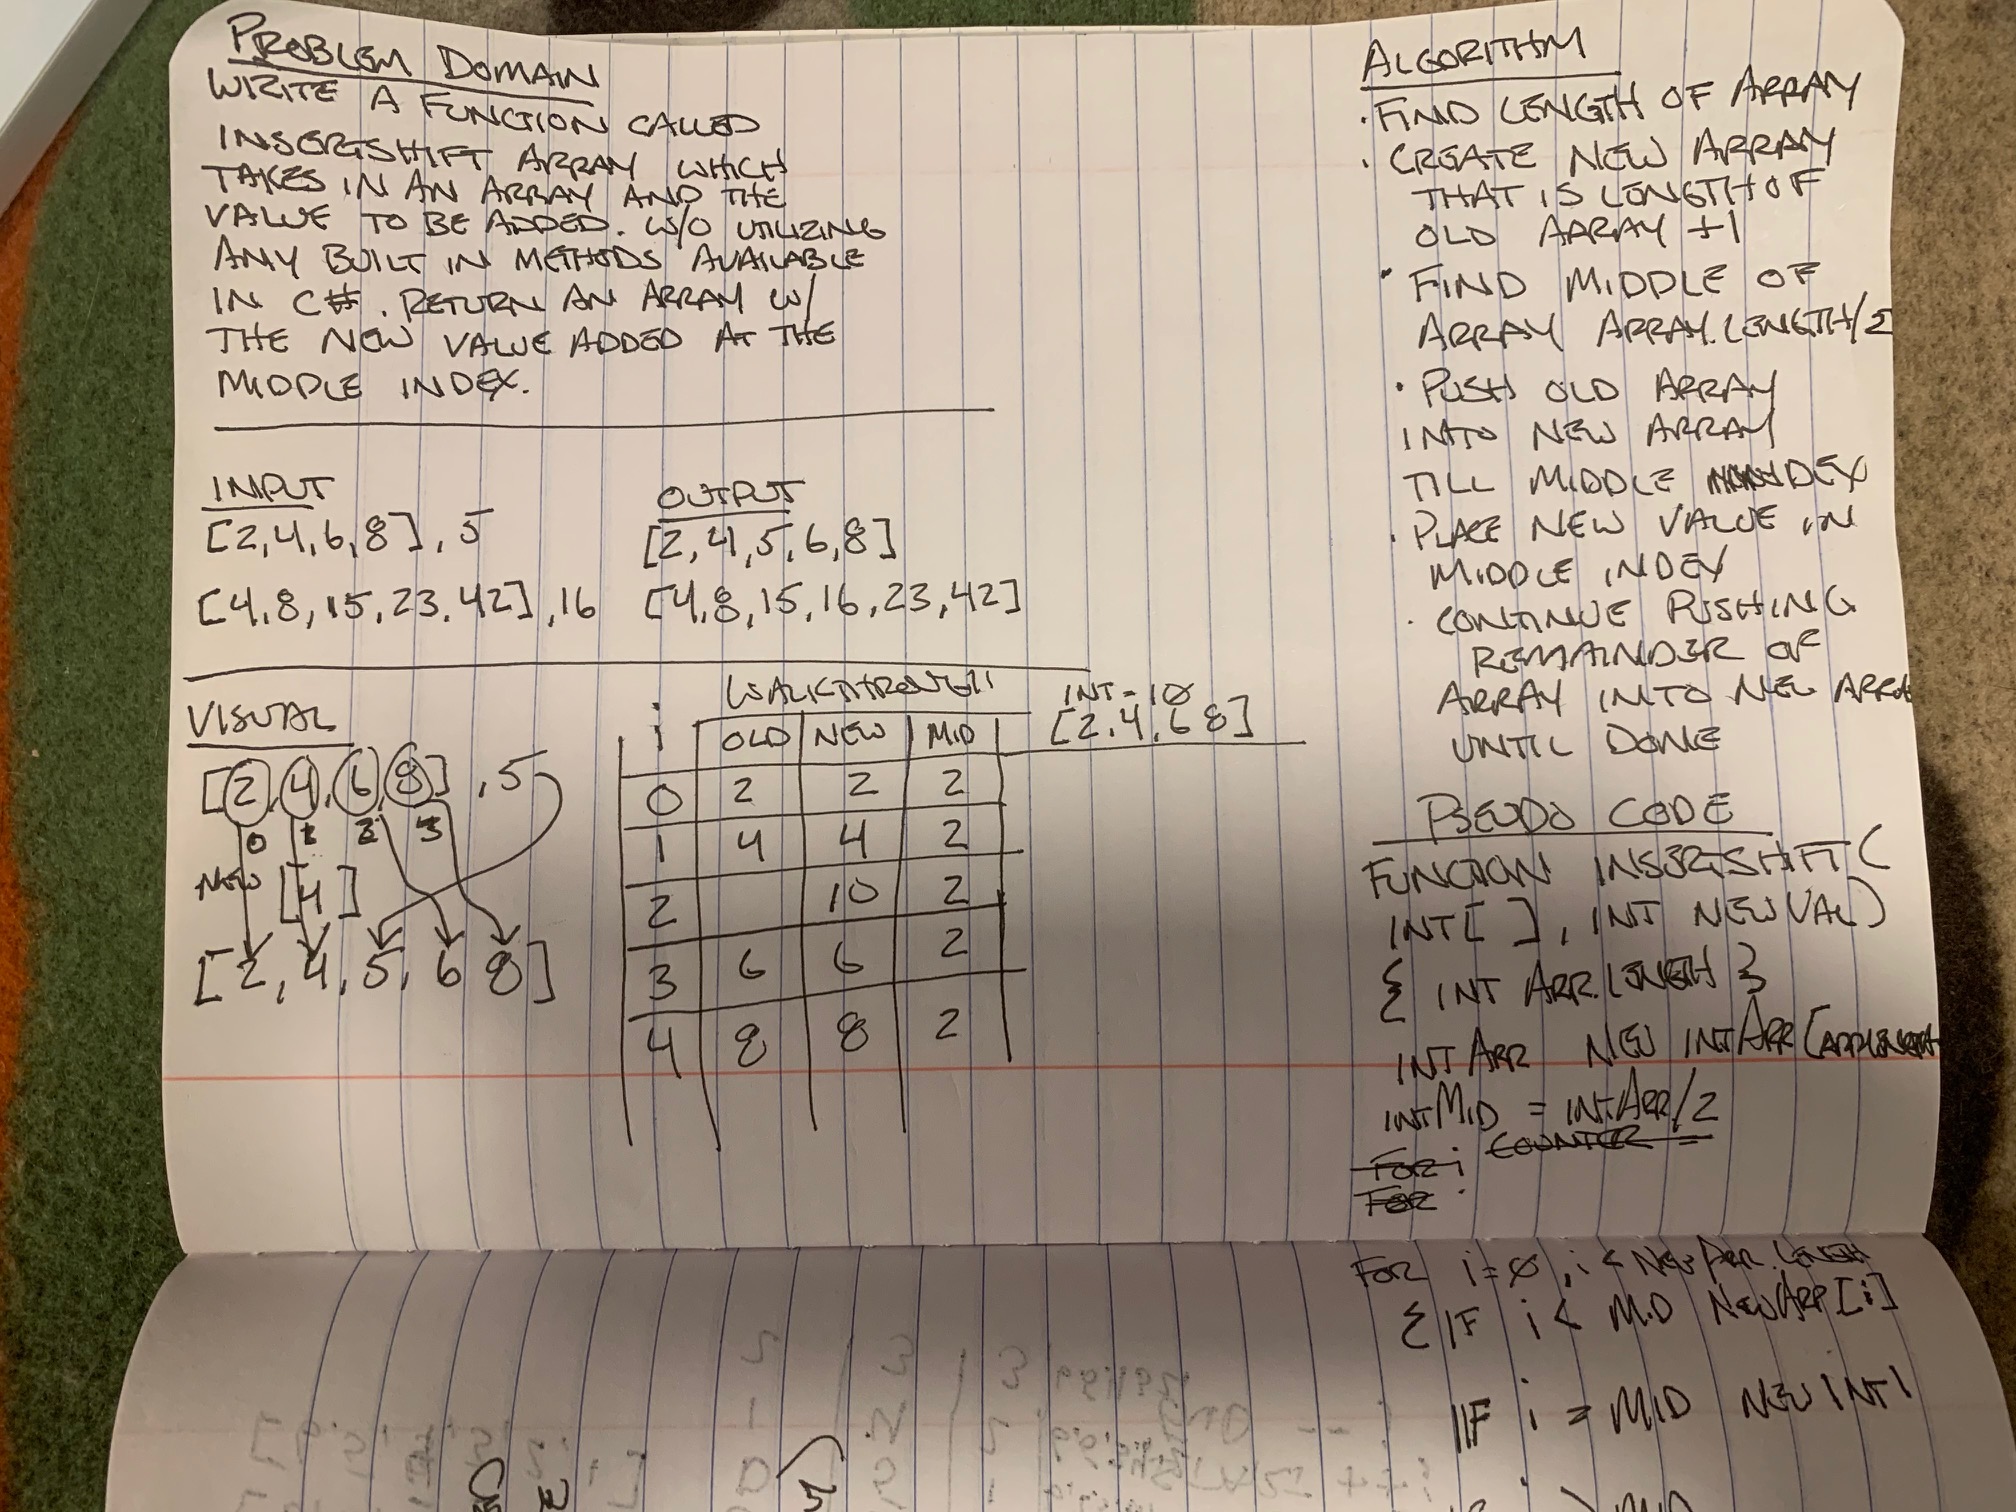 PROBLEM DOMAIN
WRITE A FUNCTION CALLED
INSERTSHIFT ARRAY WHICH
TAKES IN AN ARRAY AND THE
VALUE TO BE ADDED. W/O UTILIZING
ANY BUILT IN METHODS AVAILABLE
IN C#. RETURN AN ARRAY W/
THE NEW VALUE ADDED AT THE
MIDDLE INDEX.
INPUT
[2,4,6,8], 5
[4,8,15,23,42], 16
OUTPUT
[2,4,5,6,8]
[4,8,15,16,23,42]
VISUAL
[2,4,6,8] ,5
0 1 2 3
NEW [4]
[2,4,5,6 8]
WALKTHROUGH
INT = 10
[2,4,6 8]
i OLD NEW MID
0 2 2 2
1 4 4 2
2 10 2
3 6 6 2
4 8 8 2
ALGORITHM
· FIND LENGTH OF ARRAY
· CREATE NEW ARRAY
THAT IS LENGTH OF
OLD ARRAY +1
· FIND MIDDLE OF
ARRAY ARRAY.LENGTH/2
· PUSH OLD ARRAY
INTO NEW ARRAY
TILL MIDDLE INDEX
· PLACE NEW VALUE IN
MIDDLE INDEX
· CONTINUE PUSHING
REMAINDER OF
ARRAY INTO NEW ARRA
UNTIL DONE
PSEUDO CODE
FUNCTION INSERTSHIFT (
INT[ ], INT NEWVAL)
{ INT ARR.LENGTH }
INT ARR NEW INTARR [
INTMID = INTARR/2
FOR i COUNTER =
FOR
FOR i=0, i < NEW ARR.LENGTH
{ IF i < MID NEWARR[i]
IF i = MID NEW INT
MID